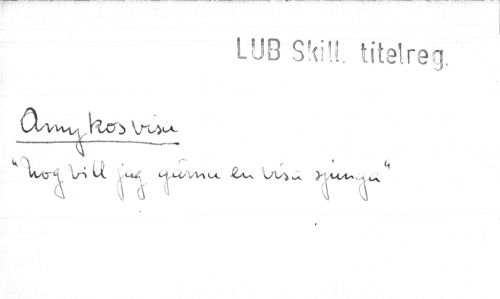 LUB Skill. titelreg.
Amykosvisa
"Nog vill jag gärna en visa sjunga"